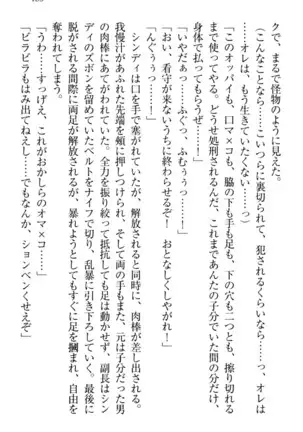 クで、まるで怪物のように見えた。
（こんなことなら……こいつらに裏切られて、犯されるくらいなら……っ、オレは
……オレは、もう生きていたくない……っ）
「このオッパイも、口マ×コも、脇の下も手も足も、下の穴も二つとも、擦り切れる
まで使ってやる。どうせ処刑されるんだ、これまであんたの子分でいた間の分、
身体で払ってもらうぜ……！」
「いやだぁっ……ふぐっ、ふむぅぅっ……」
「おい、看守が来ないうちに終わらせるぞ！　おとなしくしやがれ！」
「んぐぅーっ……！」
シンディは口を手で塞がれていたが、解放されると同時に、肉棒が差し出される。
我慢汁があふれた先端を頬に押しつけられ、そして両の手もまた、元は子分だった男
の肉棒にあてがわれていた。全力を振り絞って抵抗しても足は動かせず、副長はシン
ディのズボンを留めていたベルトをナイフで切り、乱暴に引き下ろしていく。最後に
脱がされる間際に両足が解放されるが、暴れようとしてもすぐに足を摑まれ、自由を
奪われてしまう。
「うわ……すっげえ、これがおかしらのオマ×コ……」
「ビラビラもはみ出てねえし……でもなんか、ションベンくせえぞ」